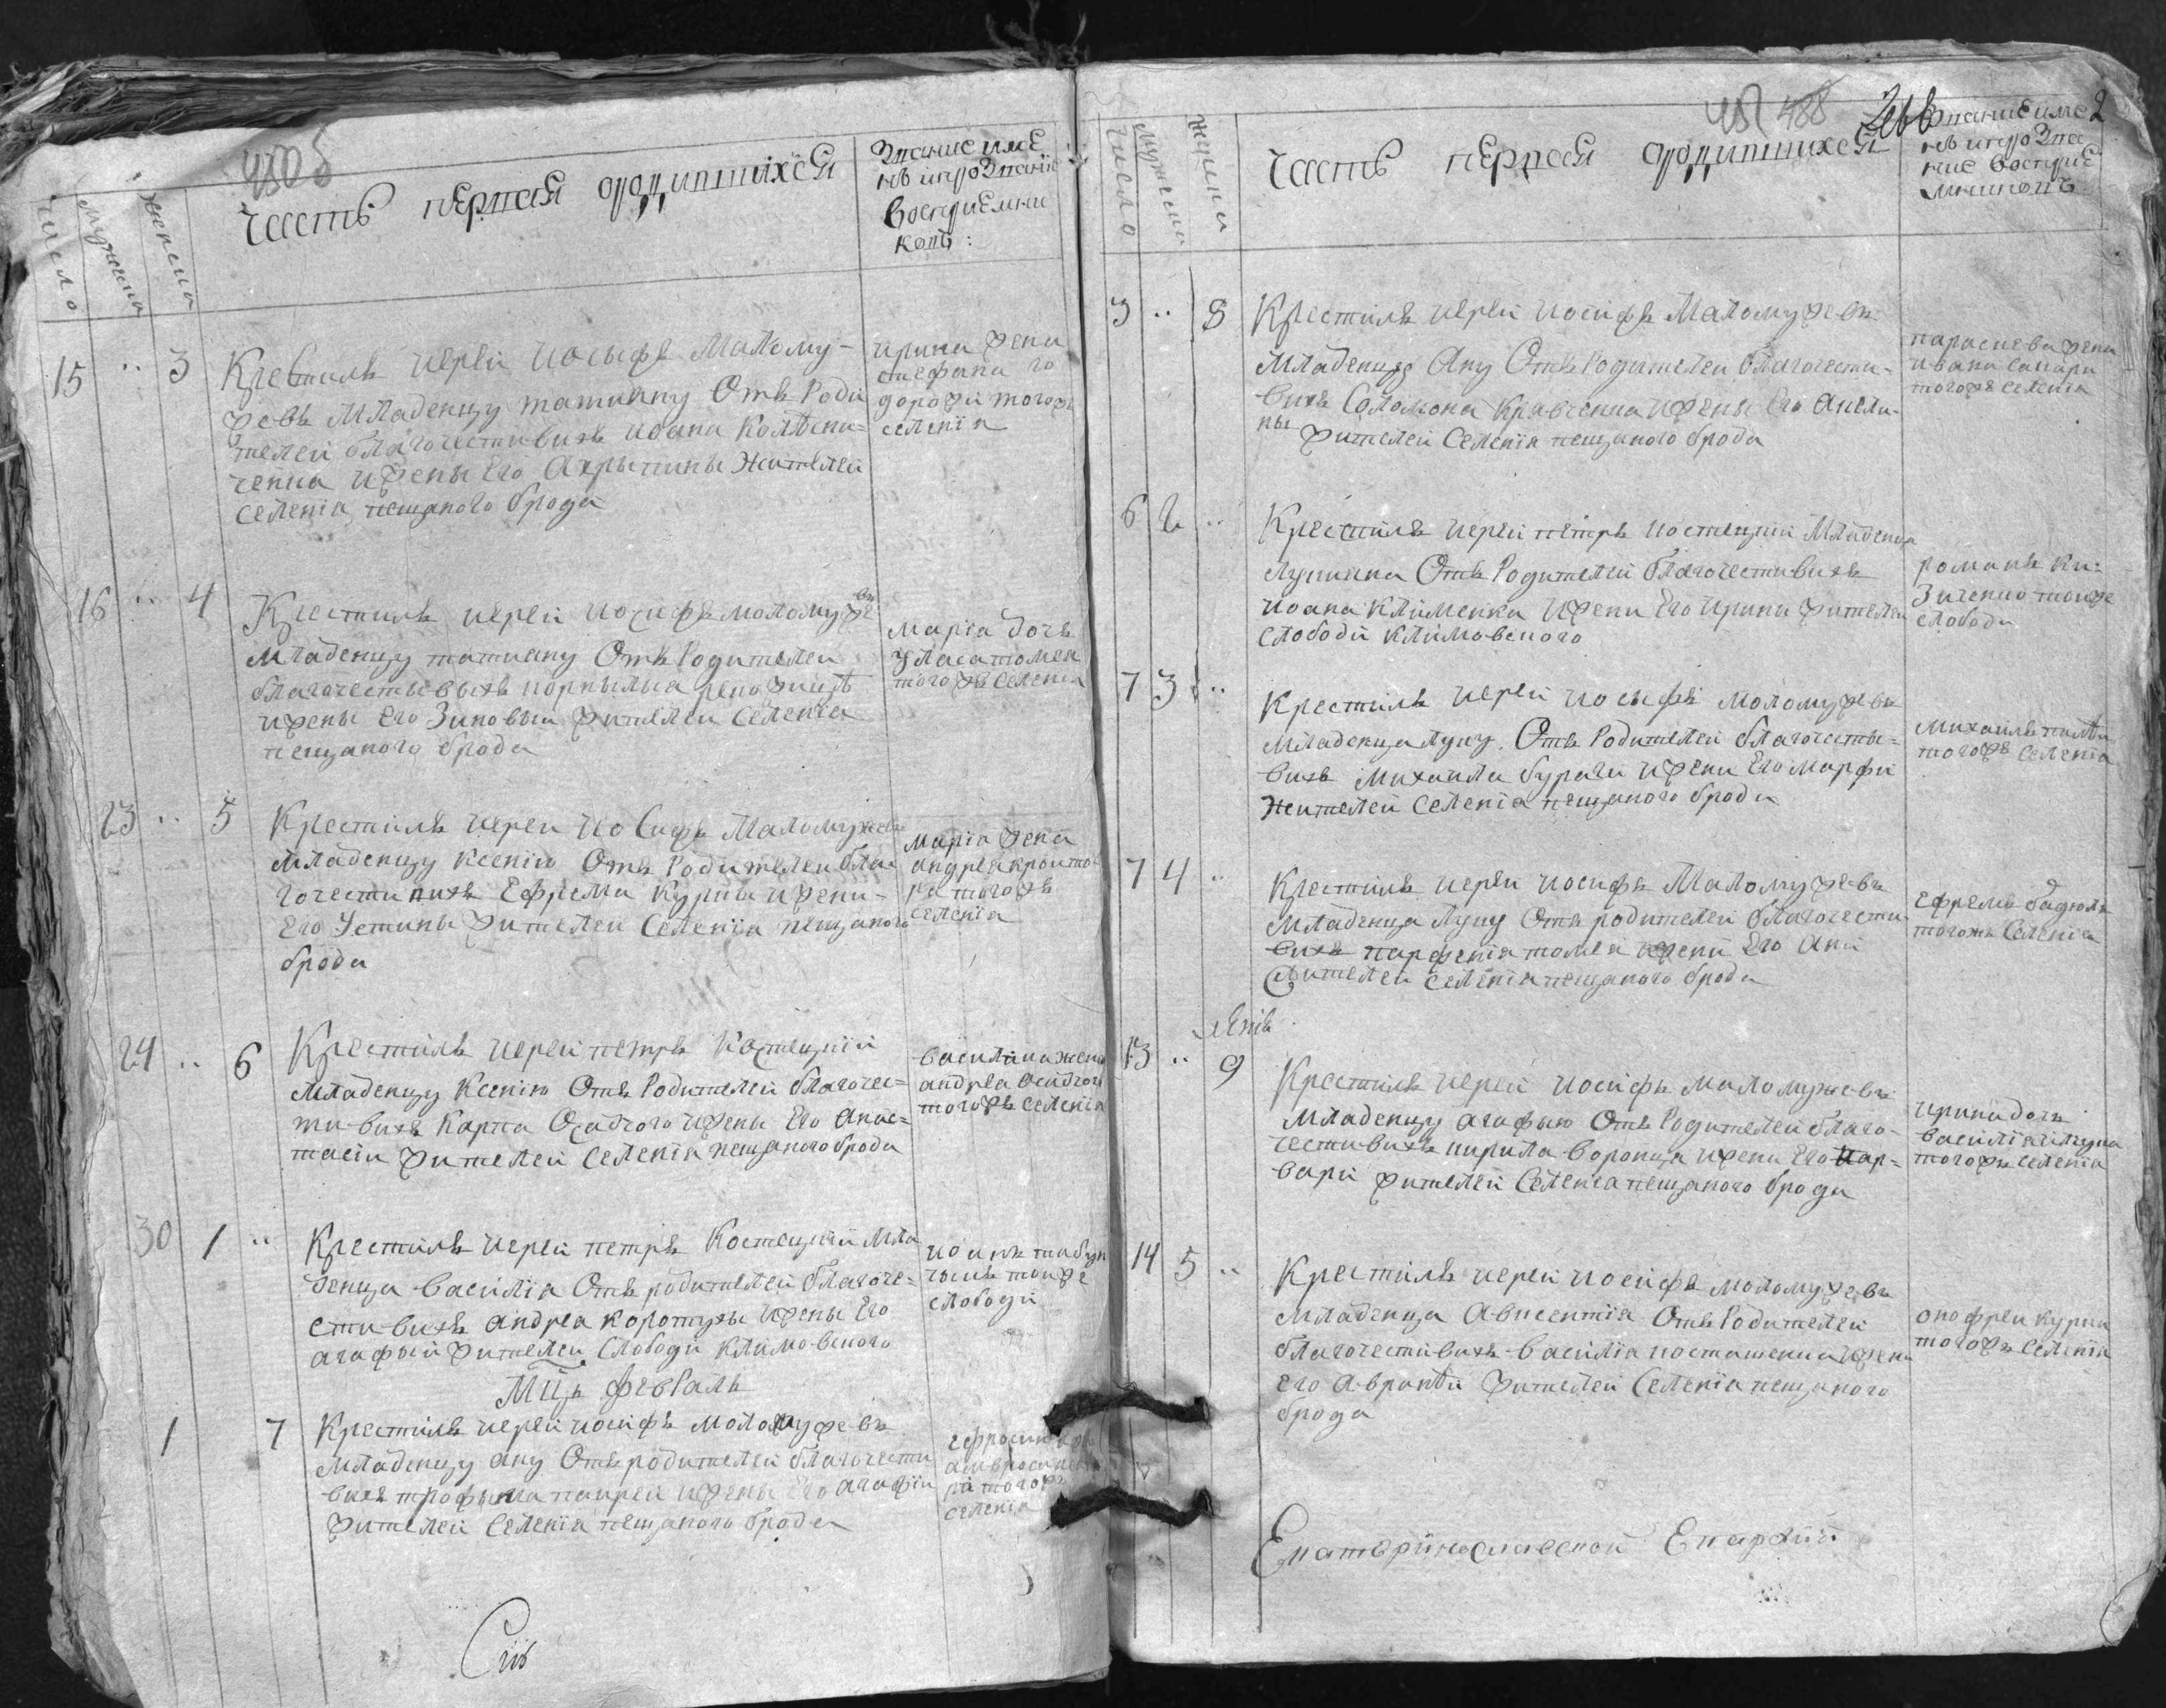 480 б
число
мужска
женска
часть первая ородившихся
Знание име
нъ ипрозвание
восприемни
ковъ:
15 .. 3
Крестилъ иерей иосыфъ Малому-
жевъ младенцу татиану Отъ Роди
телей благочестивихъ иоана Колѣсни=
ченка ижены Его Агрыпины Жителей
селенія пещаного брода
ирина жена
стефана го
дорожи тогожъ
селенія
16 .. 4
Крестилъ иерей иосифъ моломужевъ
младенцу татиану Отъ Родителей
благочестывыхъ
ижены Его Зиновыи жителей селенія
пещаного брода
марія дочь
уласа томея
тогожъ селенія
23 .. 5
Крестилъ иерей иосифъ Маломужевъ
младенцу ксенію Отъ Родителей бла
гочестивихъ Ефрема Курпы ижени-
Его Устины жителей селенія пещаного
брода
марія жена
андрея
тогожъ
селенія
24 .. 6
Крестилъ иерей петръ Костецкій
младенцу Ксенію Отъ Родителей благочес=
тивихъ Карпа Осадчого ижены Его Анас=
тасіи жителей селенія пещаного брода
василина жена
андрея осадчого
тогожъ селенія
30 1 ..
Крестилъ иерей петръ Костецкій мла
денца василія Отъ родителей благоче=
стивихъ андрея коротухы ижены Его
агафыи жителей слободи климовского
тоиже
слободи
Мцъ февраль
1 7
Крестилъ иерей иосифъ моломужевъ
младенцу ану Отъ родителей благочести
вихъ трофыма ижены Его агафіи
жителей селенія пещаного брода
тогожъ
селенія
481 488 2
число
мужска
женска
часть первая ородившихся
Знание име
нъ ипрозва
ние восприе
мниковъ
3 .. 8
Крестилъ иерей иосифъ Маломужевъ
младенцу Ану Отъ Родителей благочести-
вихъ Соломона Кравченка ижены Его Анели-
ны жителей селенія пещаного брода
параскева жена
ивана
тогожъ селенія
6 2 ..
Крестилъ иерей петръ костецкий младенца
лукиана Отъ Родителей благочестивихъ
иоана клименка ижени Его ирини жителей
слободи климовского
романъ ки-
зиченко тоиже
слободи
7 3 ..
Крестилъ иерей иосыфъ моломужевъ
младенца луку. Отъ Родителей благочесты=
вихъ михаила бурачи ижени Его марфи
жителей селенія пещаного брода
михаилъ
тогожъ селенія
7 4 ..
Крестилъ иерей иосифъ Маломужевъ
младенца луку Отъ родителей благочести-
вихъ парфенія томея ижени Его Ани
жителей селенія пещаного брода
ефремъ бадюлъ
тогожъ селенія
13 .. 9
Крестилъ иерей иосифъ маломужевъ
младенцу агафыю Отъ Родителей благо-
честивихъ кирила воронца ижени Его вар=
вари жителей селенія пещаного брода
ирина дочь
василія
тогожъ селенія
14 5 ..
Крестилъ иерей иосифъ моломужевъ
младенца Авксентія Отъ Родителей
благочестивихъ василія косташенка ижени
Его жителей селенія пещаного
брода
онофрей курпа
тогожъ селенія
Екатеринославской Епархіи